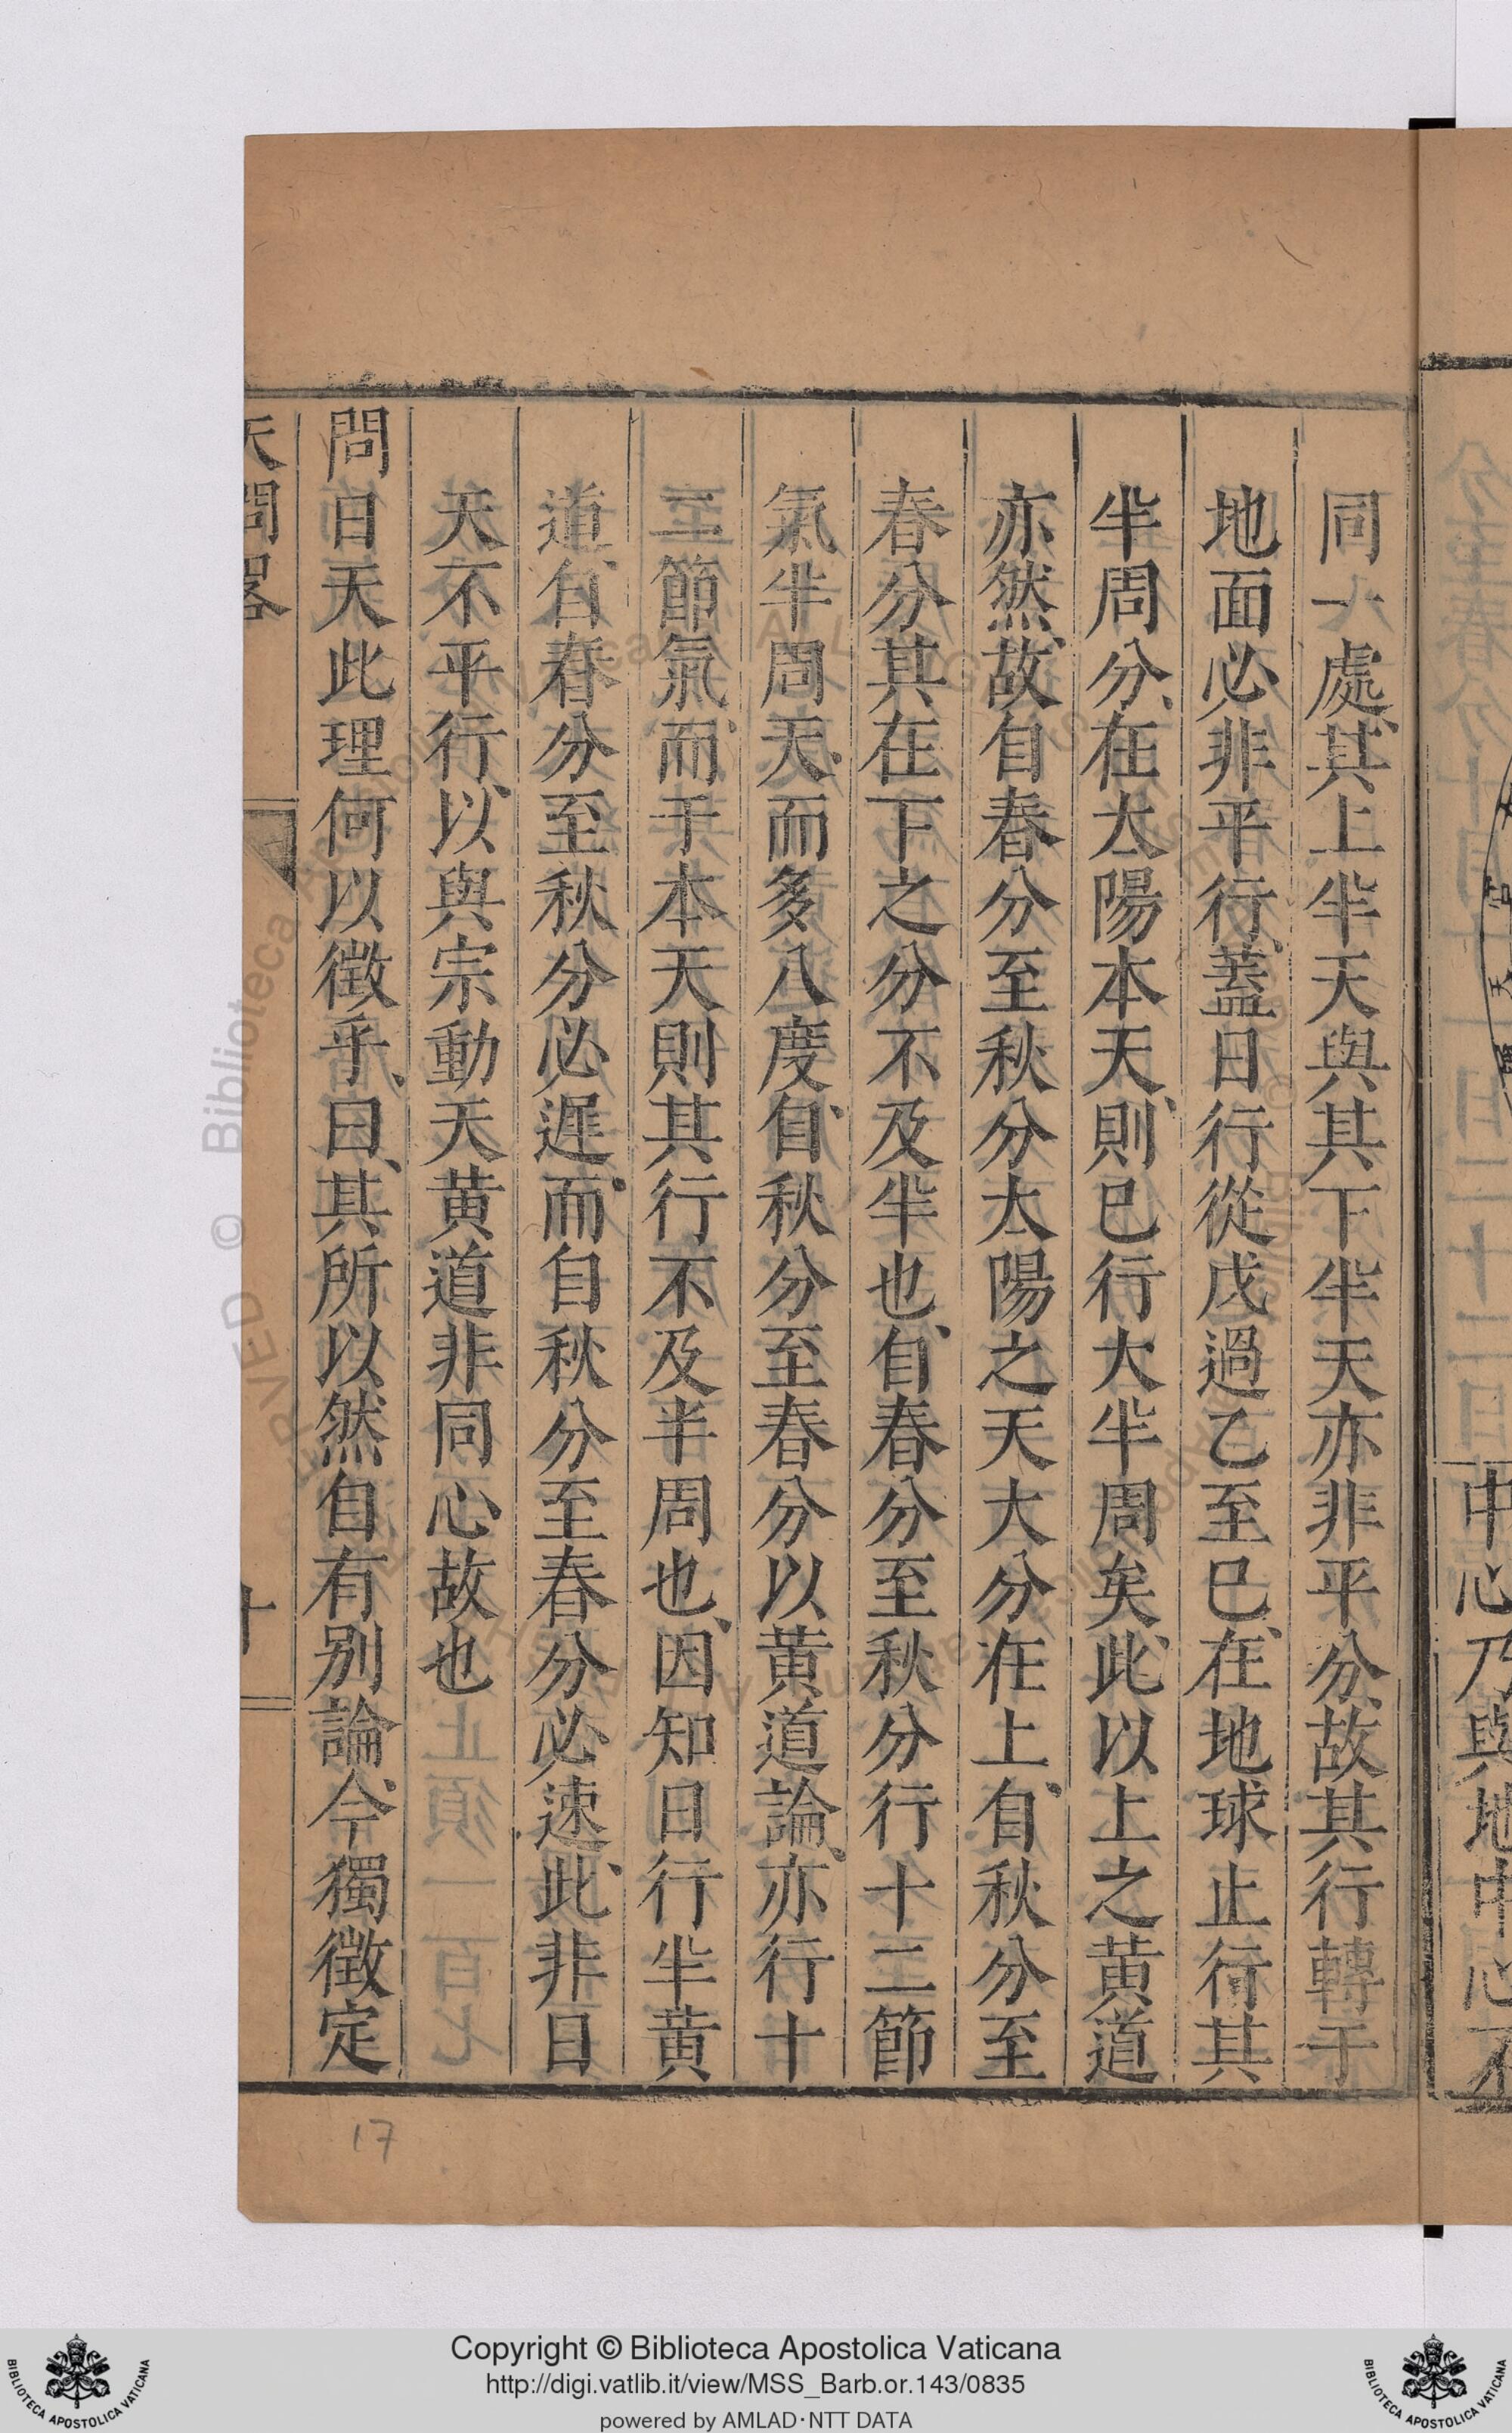 中心乃與地中心不
同一處、其上半天與其下半天亦非平分、故其行轉于
地面必非平行、蓋日行從戊過乙至巳、在地球止行其
半周分、在太陽本天、則巳行大半周矣、此以上之黃道
亦然、故自春分至秋分太陽之天大分在上、自秋分至
春分其在下之分不及半也、自春分至秋分行十二節
氣半周天、而多八度、自秋分至春分以黃道論、亦行十
二節氣、而于本天則其行不及半周也、因知日行半黃
道、自春分至秋分必遲、而自秋分至春分必速、此非日
天不平行、以與宗動天黃道非同心故也
問曰天此理何以徵乎、曰、其所以然自有別論、今獨徵定
天問畧
十
17
Copyright © Biblioteca Apostolica Vaticana
http://digi.vatlib.it/view/MSS_Barb.or.143/0835
powered by AMLAD·NTT DATA
BIBLIOTECA APOSTOLICA VATICANA
BIBLIOTECA APOSTOLICA VATICANA